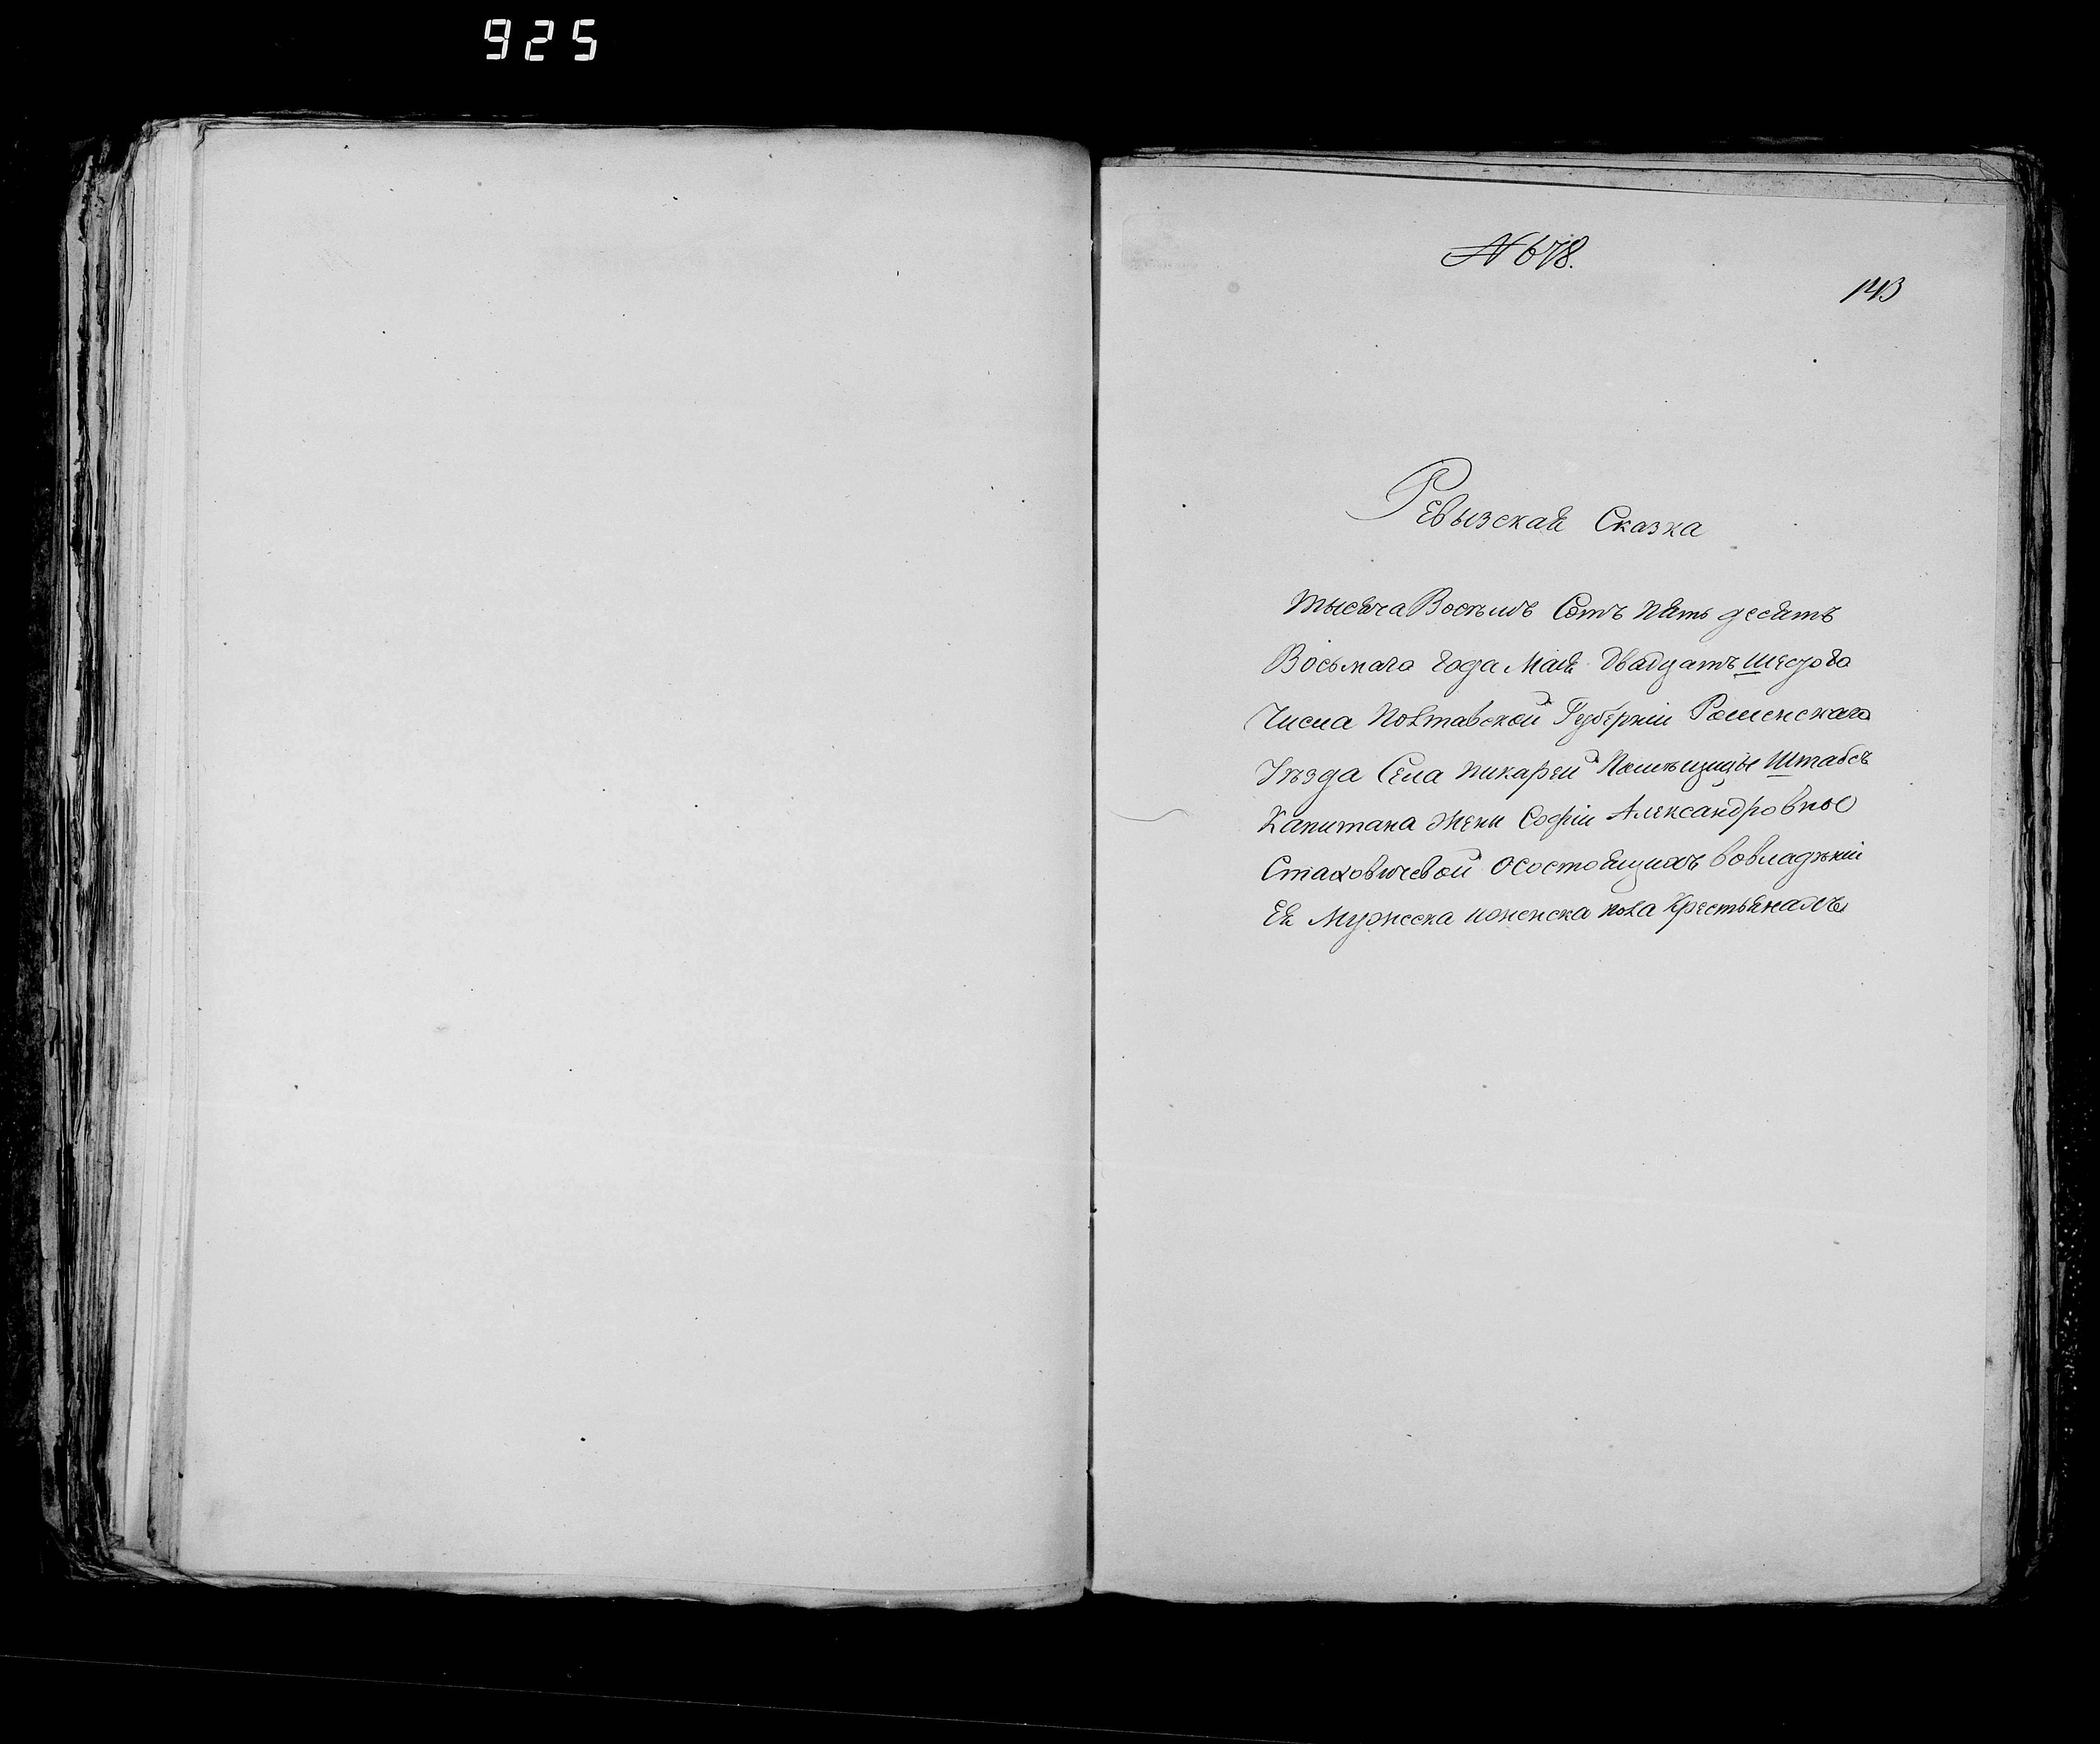 925
№ 678.
143
Ревызская Сказка
тысяча Восъмъ Сотъ пять десятъ
Восьмаго года Мая двадцатъ шестого
Числа Полтавской Губерніи Роменскаго
Уѣзда Села пикарей Помѣщицы Штабсъ
Капитана Жени Софіи Александровное
Стаховичевой осостоящихъ вовладѣніи
Ея Мужеска ионенска пола Крестьянахъ